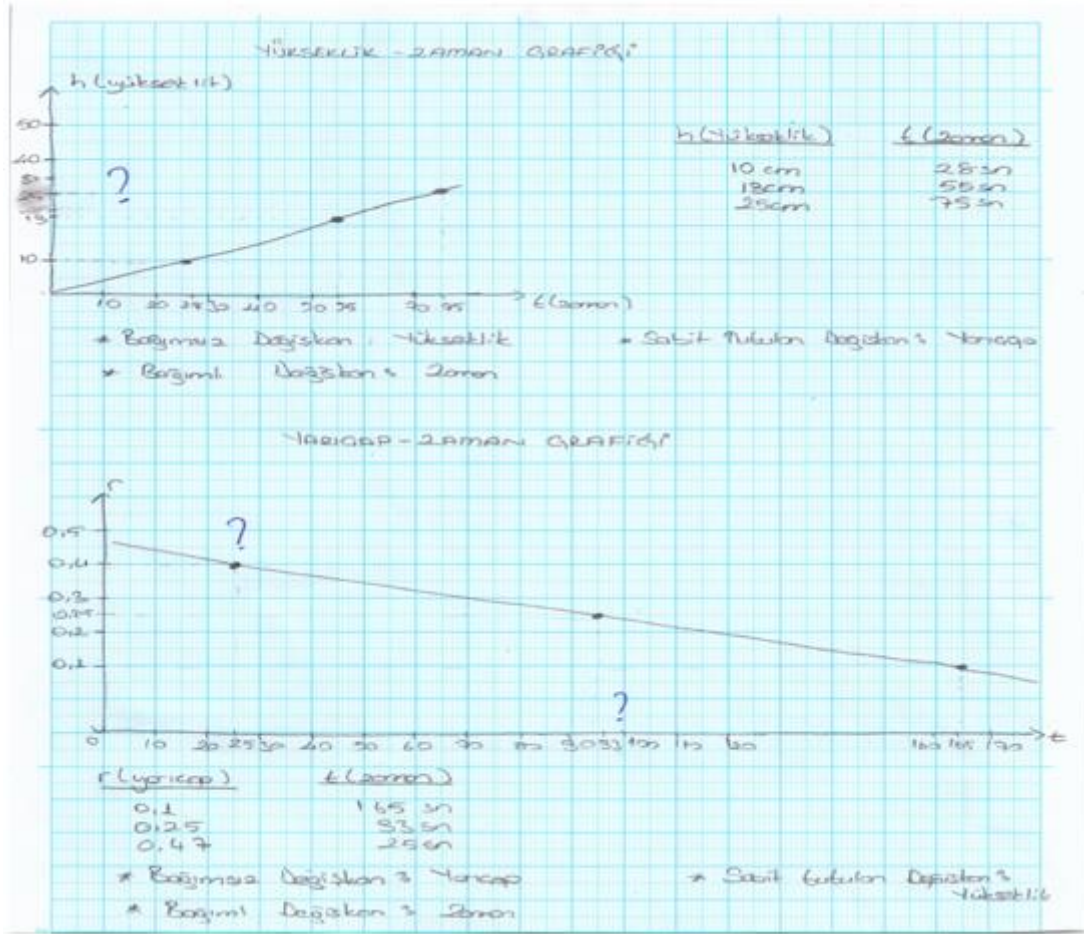 YÜKSEKLİK - ZAMAN GRAFİĞİ
h (yükseklik)
50
40
?
10
10 20 28 30 40 50 55 70 75 t (zaman)
h (Yükseklik) t (zaman)
10 cm 28 sn
18cm 55 sn
25cm 75 sn
* Bağımsız Değişken : Yükseklik * Sabit Tutulan Değişken : Yarıçap
* Bağımlı Değişken : Zaman
YARIÇAP - ZAMAN GRAFİĞİ
r
0,5
?
0,4
0,3
0,25
0,2
0,1
?
0 10 20 25 30 40 50 60 90 93 100 160 165 170 t
r (yarıçap) t (zaman)
0,1 165 sn
0,25 93 sn
0,47 25 sn
* Bağımsız Değişken : Yarıçap * Sabit tutulan Değişken :
Yükseklik
* Bağımlı Değişken : Zaman